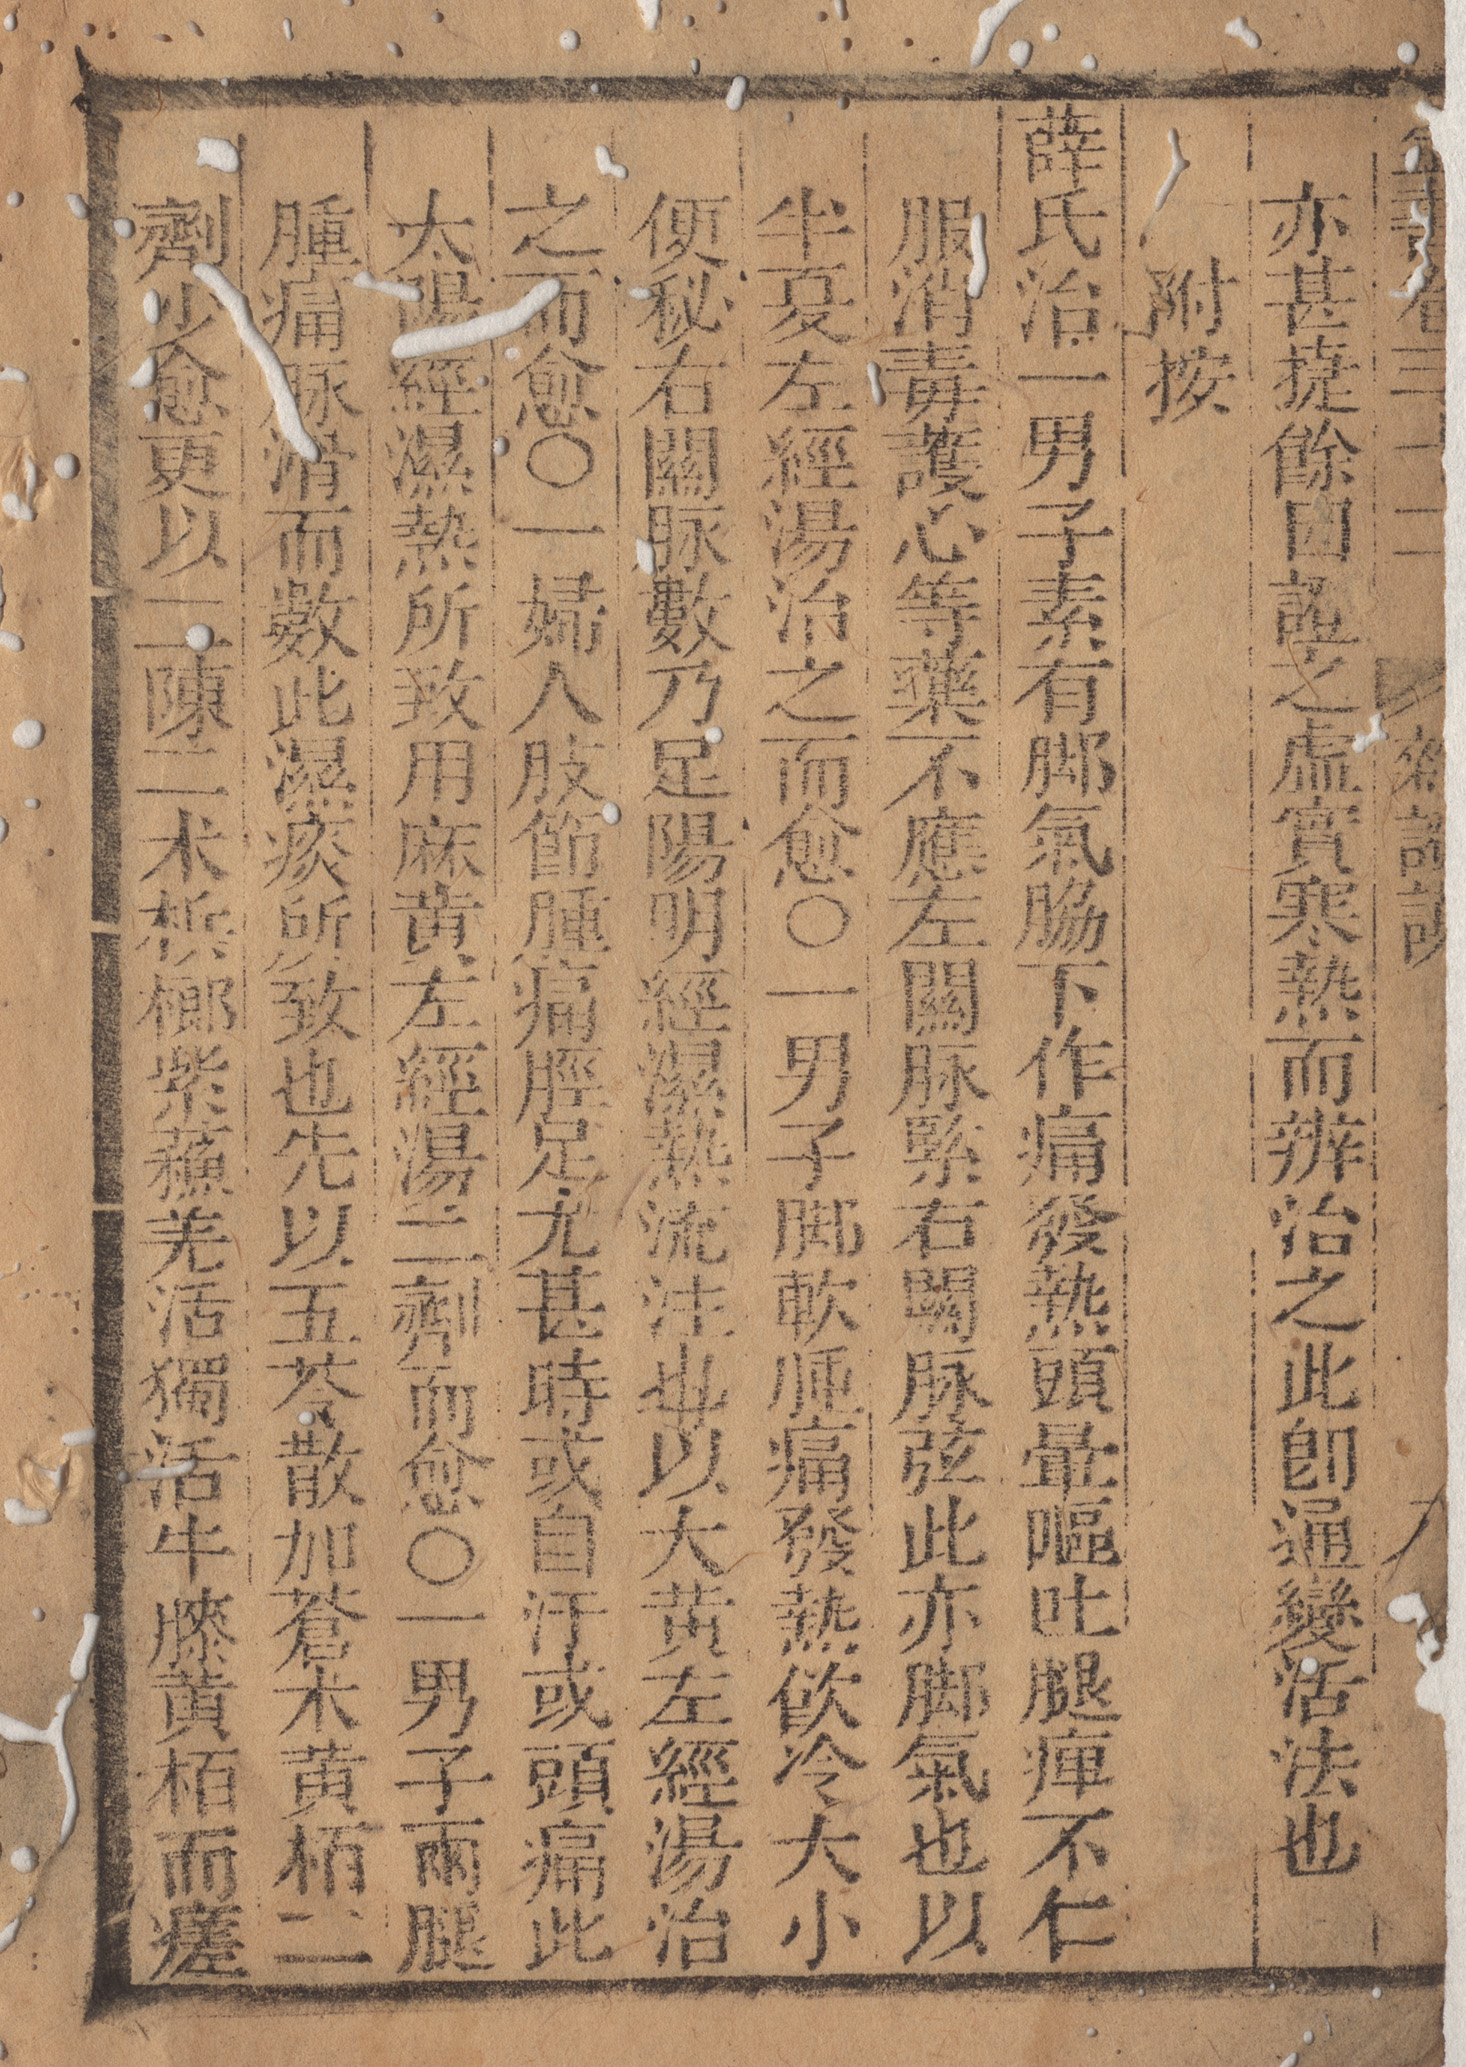 亦甚捷餘因證之虛實寒熱而辨治之此卽通變活法也
附按
薛氏治一男子素有脚氣脇下作痛發熱頭暈嘔吐腿痺不仁
服消毒護心等藥不應左關脉緊右關脉弦此亦脚氣也以
半夏左經湯治之而愈○一男子脚軟腫痛發熱飲冷大小
便秘右關脉數乃足陽明經濕熱流注也以大黄左經湯治
之而愈○一婦人肢節腫痛脛足尤甚時或自汗或頭痛此
太陽經濕熱所致用麻黄左經湯二劑而愈○一男子兩腿
腫痛脉滑而數此濕痰所致也先以五苓散加蒼术黄栢二
劑少愈更以二陳二术檳榔紫蘓羌活獨活牛膝黄栢而瘥